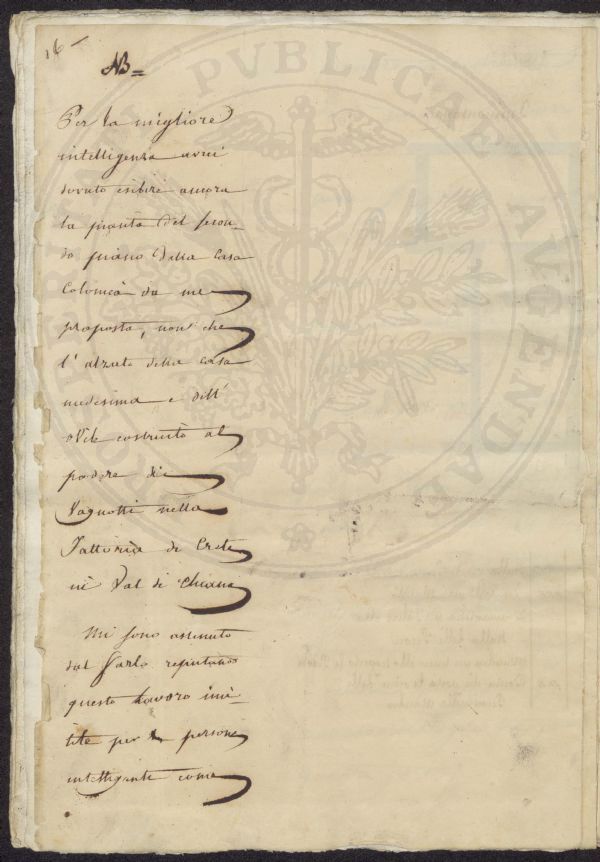 16 –
NB =
Per la migliore
intelligenza avrei
dovuto esibire ancora
la pianta del secon-
do piano della casa
Colonica da me
proposta, non che
l'alzato della casa
medesima e dell'
ovile costruito al
podere di
Vagnotti nella
Fattoria di Creti
in Val di Chiana
Mi sono astenuto
dal farlo reputando
questo lavoro inu-
tile per le persone
intelligenti come
PRO PUBLICAE AUGENDAE